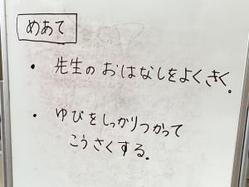 めあて
・先生のおはなしをよくきく。
・ゆびをしっかりつかって
こうさくする。